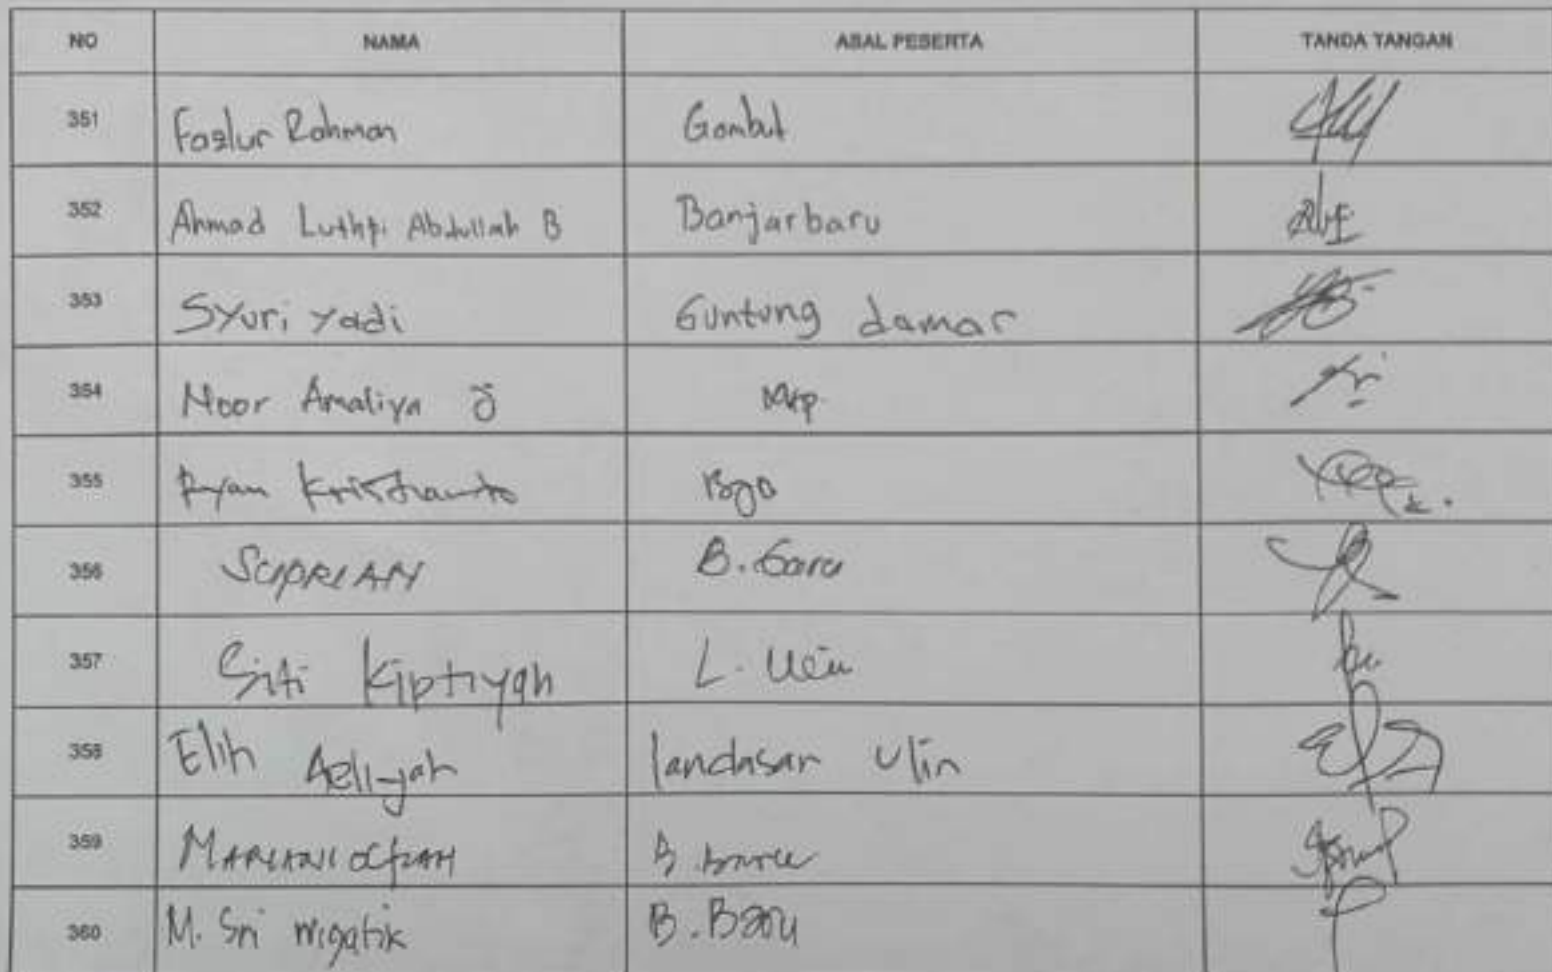 NO NAMA ASAL PESERTA TANDA TANGAN
351 Fazlur Rahman Gambut
352 Ahmad Luthpi Abdullah B Banjarbaru
353 Syuri yadi Guntung damar
354 Noor Amaliya Mtp
355 Ryan Kristianto
356 SUPRIAN B. Baru
357 Siti Kiptiyah L. Ulin
358 Elih Aeliyah landasan Ulin
359 B. baru
360 M. Sri wigatik B. Baru